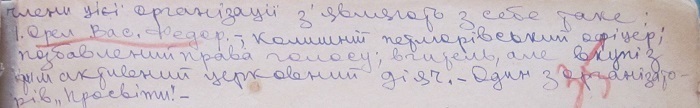 члени цієї організації з'являють з себе таке:
1. Орел Вас. Федор. – колишній петлюрівський офіцер;
позбавлений права голосу; вчитель, але вкупі з
цим активний церковний діяч. – Один з організато-
рів „Просвіти". –